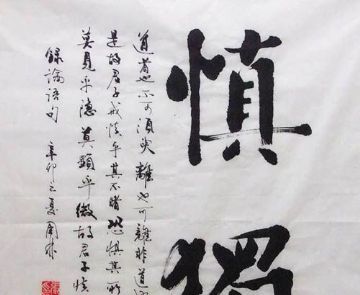 慎獨
道也不可須臾離也可離非道
是故君子戒慎乎其不睹恐懼其所
莫見乎隱莫顯乎微故君子慎
錄論語句 辛卯之夏